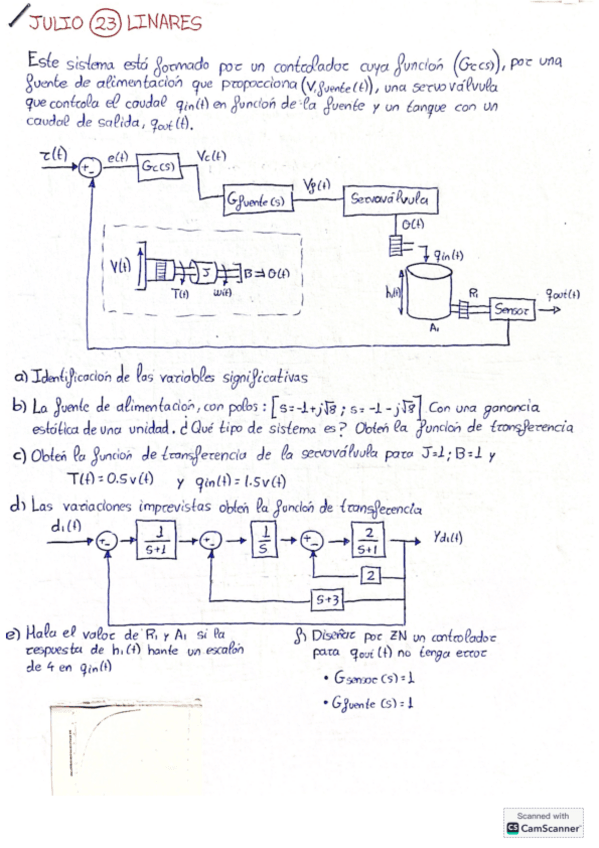 JULIO 23 LINARES
Este sistema está formado por un controlador cuya función (Gc(s)), por una
fuente de alimentación que proporciona (V.fuente(t)), una servoválvula
que controla el caudal qin(t) en función de la fuente y un tanque con un
caudal de salida, qout(t).
r(t)
+
-
e(t)
Gc(s)
Vc(t)
Gfuente(s)
Vf(t)
Servoválvula
θ(t)
qin(t)
V(t)
T(t)
J
w(t)
B ⇒ θ(t)
h(t)
A1
R1
Sensor
qout(t)
a) Identificación de las variables significativas
b) La fuente de alimentación, con polos: [s=-1+j√8 ; s=-1-j√8] Con una ganancia
estática de una unidad. ¿Qué tipo de sistema es? Obtén la función de transferencia
c) Obtén la función de transferencia de la servoválvula para J=1; B=1 y
T(t)=0.5v(t) y qin(t)=1.5v(t)
d) Las variaciones imprevistas obtén la función de transferencia
d1(t)
+
-
1/(s+1)
+
-
1/s
+
-
2/(s+1)
Yd1(t)
2
s+3
e) Hala el valor de R1 y A1 si la
respuesta de h1(t) hante un escalón
de 4 en qin(t)
f) Diseñar por ZN un controlador
para qout(t) no tenga error
• Gsensor(s)=1
• Gfuente(s)=1
Scanned with
CS CamScanner